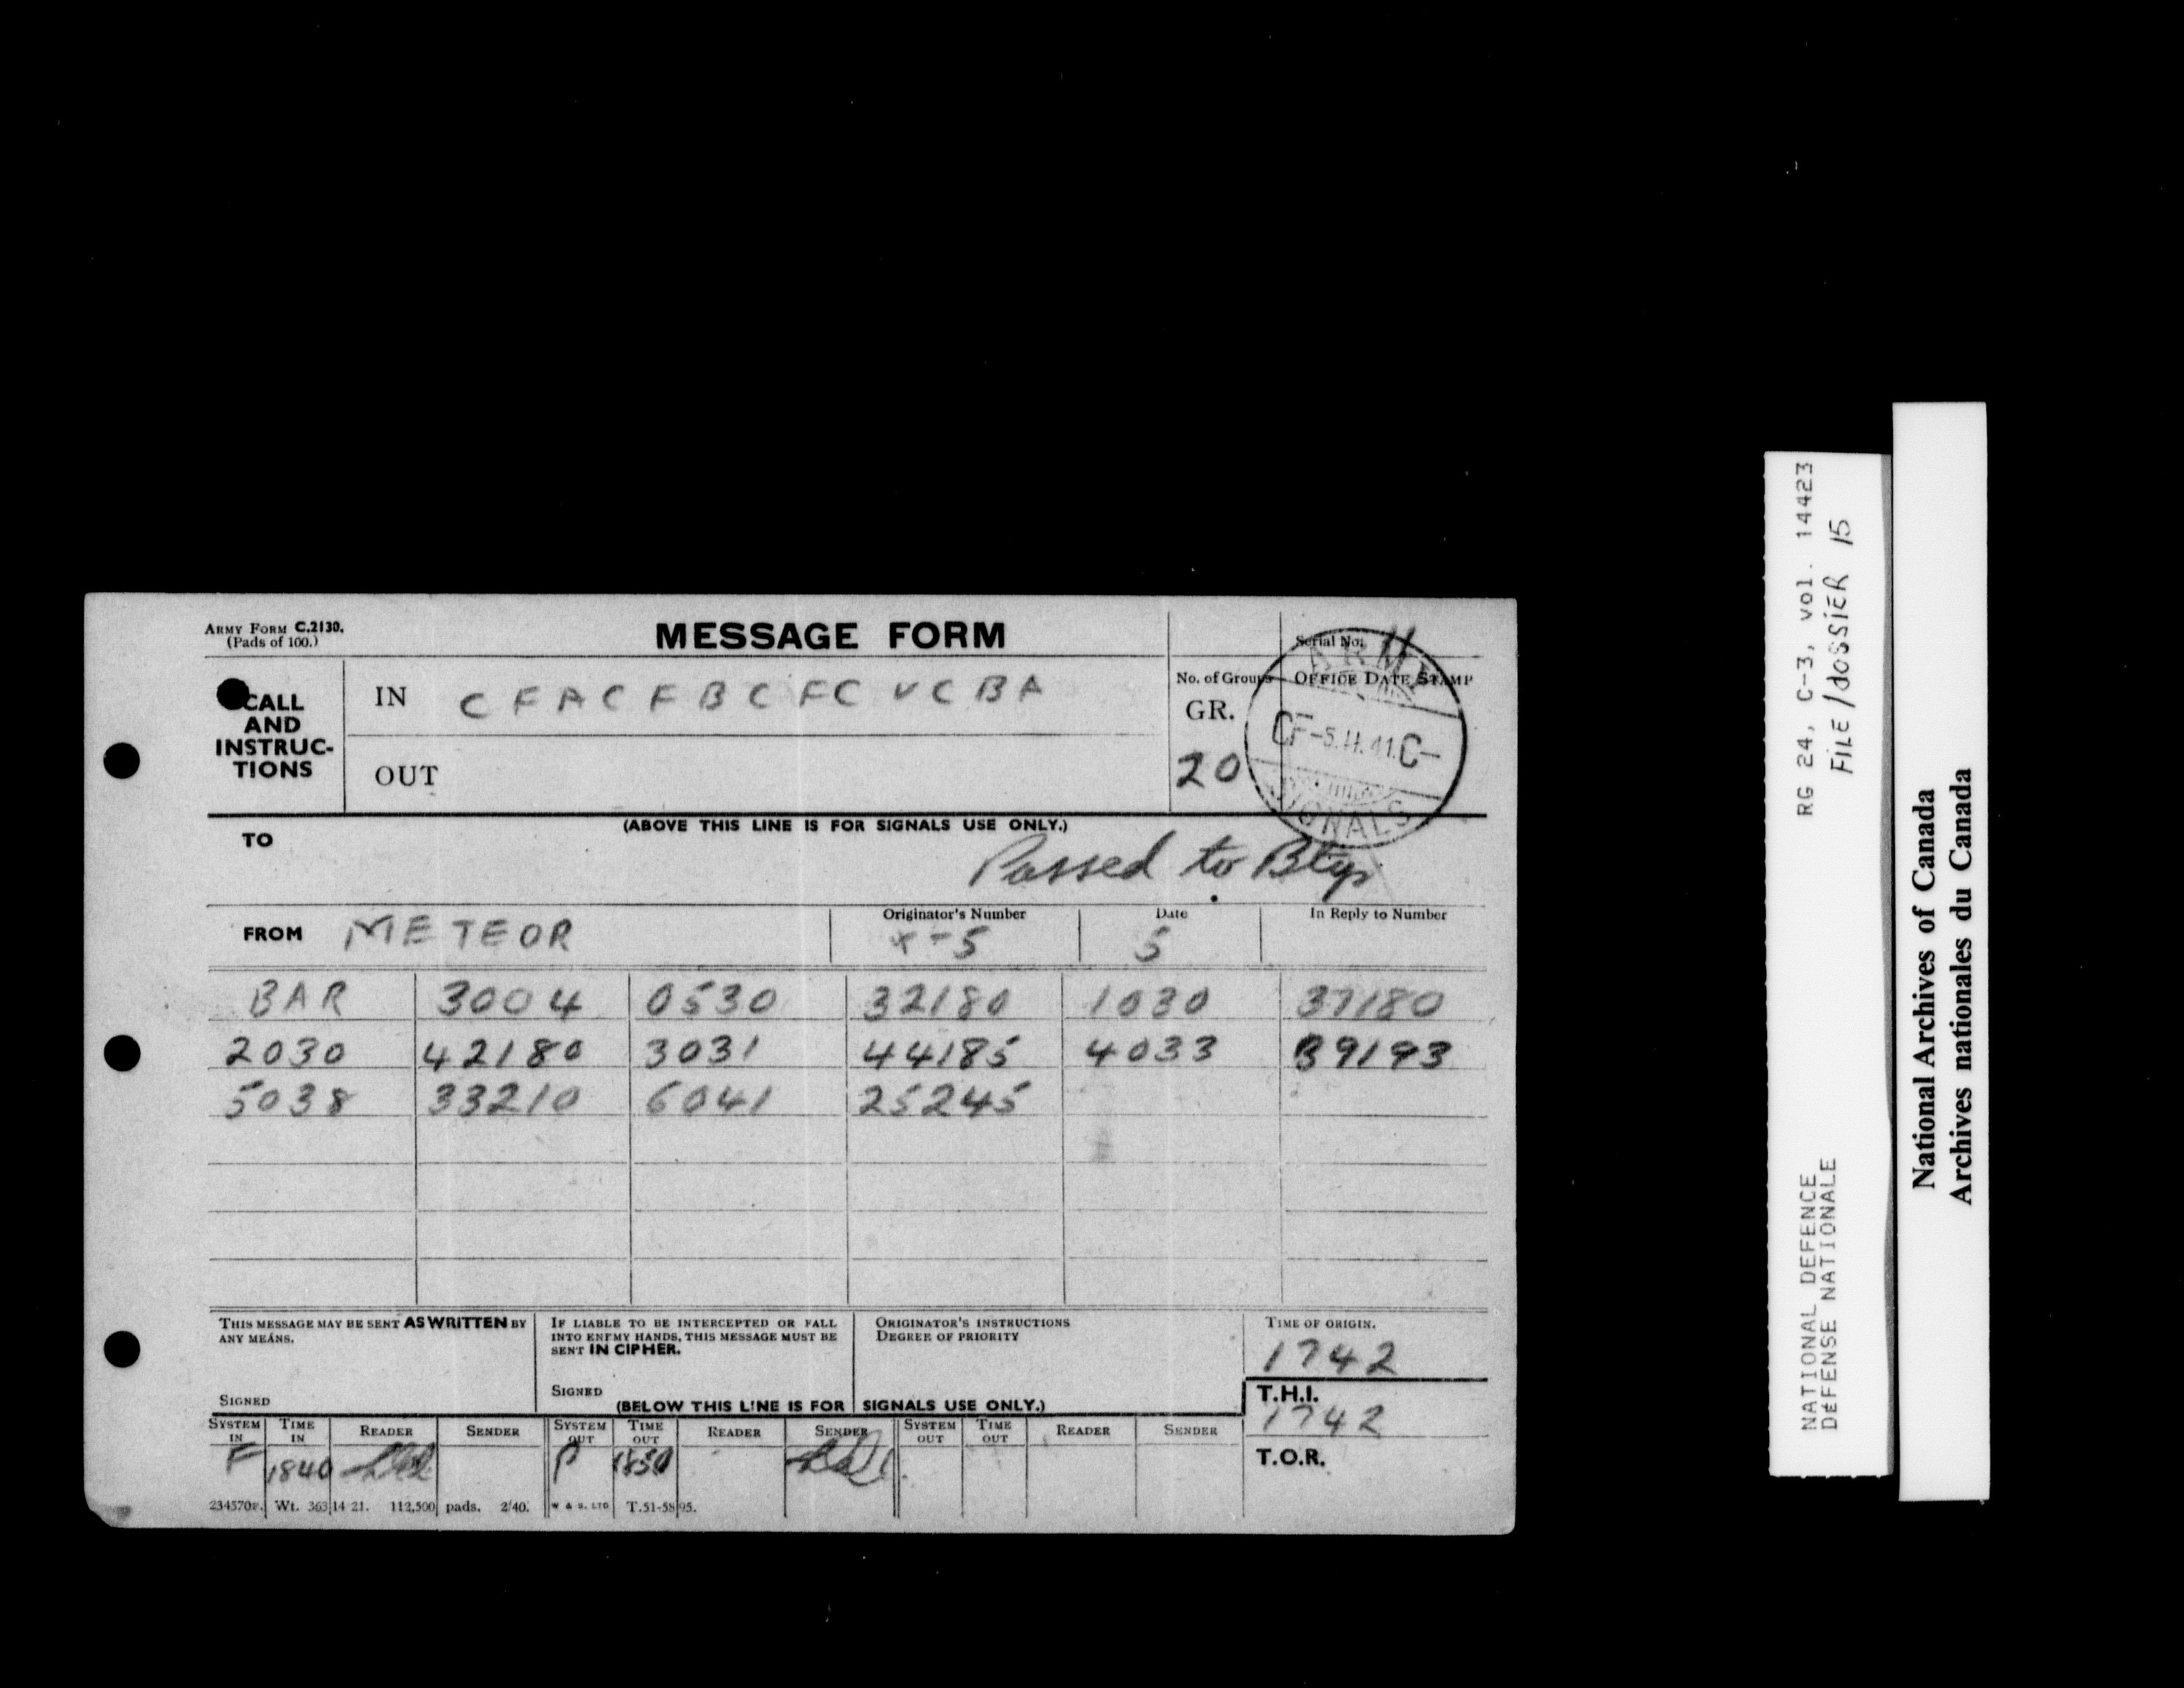 ARMY FORM C.2130.
(Pads of 100.)
MESSAGE FORM
Serial No. 11
CALL AND INSTRUC-TIONS
IN C F A C F B C FC V C B A
OUT
No. of Groups
GR.
20
OFFICE DATE STAMP
ARMY
CF-5.11.41.C-
SIGNALS
(ABOVE THIS LINE IS FOR SIGNALS USE ONLY.)
TO
Passed to Btys
FROM METEOR
Originator's Number
X-5
Date
5
In Reply to Number
BAR 3004 0530 32180 1030 37180
2030 42180 3031 44185 4033 39193
5038 33210 6041 25245
THIS MESSAGE MAY BE SENT AS WRITTEN BY
ANY MEANS.
SIGNED
IF LIABLE TO BE INTERCEPTED OR FALL
INTO ENEMY HANDS, THIS MESSAGE MUST BE
SENT IN CIPHER.
SIGNED
ORIGINATOR'S INSTRUCTIONS
DEGREE OF PRIORITY
TIME OF ORIGIN.
1742
T.H.I.
1742
T.O.R.
(BELOW THIS LINE IS FOR SIGNALS USE ONLY.)
SYSTEM IN TIME IN READER SENDER SYSTEM OUT TIME OUT READER SENDER SYSTEM OUT TIME OUT READER SENDER
F 1840 P 1850
234570F. Wt. 363 14 21. 112,500 pads. 2/40. W & S. LTD T.51-5895.
RG 24, C-3, vol. 14423
FILE/dOSSiER 15
NATIONAL DEFENCE
DÉFENSE NATIONALE
National Archives of Canada
Archives nationales du Canada